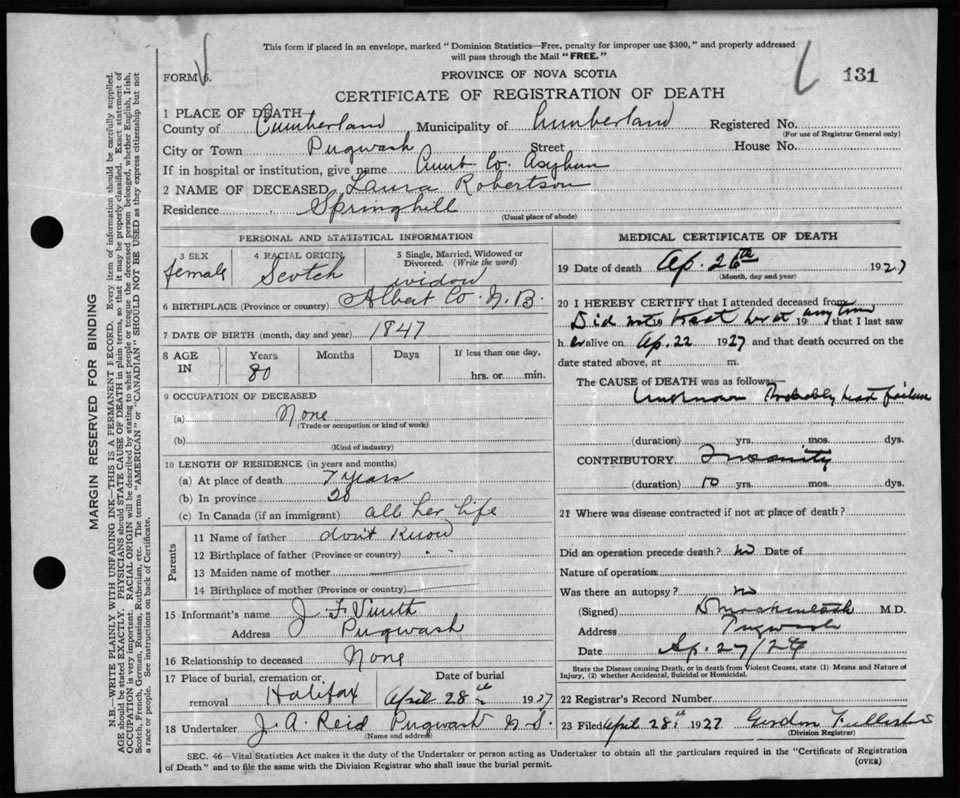 This form if placed in an envelope, marked "Dominion Statistics—Free, penalty for improper use $300," and properly addressed
will pass through the Mail "FREE."
FORM 6.
PROVINCE OF NOVA SCOTIA
131
CERTIFICATE OF REGISTRATION OF DEATH
1 PLACE OF DEATH—
County of Cumberland Municipality of Cumberland Registered No.
(For use of Registrar General only)
City or Town Pugwash Street House No.
If in hospital or institution, give name Cum Co. Asylum
2 NAME OF DECEASED Laura Robertson
Residence Springhill
(Usual place of abode)
PERSONAL AND STATISTICAL INFORMATION
3 SEX female 4 RACIAL ORIGIN Scotch 5 Single, Married, Widowed or Divorced. (Write the word) widow
6 BIRTHPLACE (Province or country) Albert Co. N.B.
7 DATE OF BIRTH (month, day and year) 1847
8 AGE IN Years 80 Months Days If less than one day, hrs. or min.
9 OCCUPATION OF DECEASED
(a) None
(Trade or occupation or kind of work)
(b)
(Kind of industry)
10 LENGTH OF RESIDENCE (in years and months)
(a) At place of death 7 years
(b) In province 20
(c) In Canada (if an immigrant) all her life
Parents
11 Name of father don't know
12 Birthplace of father (Province or country) " "
13 Maiden name of mother
14 Birthplace of mother (Province or country)
15 Informant's name J. F.
Address Pugwash
16 Relationship to deceased None
17 Place of burial, cremation or removal Halifax Date of burial April 28th 1927
18 Undertaker J. A. Reid Pugwash N.S.
(Name and address)
MEDICAL CERTIFICATE OF DEATH
19 Date of death Ap. 26th 1927
(Month, day and year)
20 I HEREBY CERTIFY that I attended deceased from
Did not treat her at any time 19 that I last saw
her alive on Ap. 22 1927 and that death occurred on the
date stated above, at m.
The CAUSE of DEATH was as follows:—
Unknown Probably heart failure
(duration) yrs. mos. dys.
CONTRIBUTORY Insanity
(duration) 10 yrs. mos. dys.
21 Where was disease contracted if not at place of death?
Did an operation precede death? no Date of
Nature of operation
Was there an autopsy? no
(Signed) M.D.
Address Pugwash
Date Ap. 27/27
State the Disease causing Death, or in death from Violent Causes, state (1) Means and Nature of
Injury, (2) whether Accidental, Suicidal or Homicidal.
22 Registrar's Record Number
23 Filed April 28th 1927 Gordon
(Division Registrar)
SEC. 46—Vital Statistics Act makes it the duty of the Undertaker or person acting as Undertaker to obtain all the particulars required in the "Certificate of Registration
of Death" and to file the same with the Division Registrar who shall issue the burial permit.
(OVER)
MARGIN RESERVED FOR BINDING
N.B.—WRITE PLAINLY WITH UNFADING INK—THIS IS A PERMANENT RECORD. Every item of information should be carefully supplied.
AGE should be stated EXACTLY. PHYSICIANS should STATE CAUSE OF DEATH in plain terms, so that it may be properly classified. Exact statement of
OCCUPATION is very important. RACIAL ORIGIN will be described by stating to what people or tongue the deceased person belonged, whether English, Irish,
Scotch, French, German, Russian, Ruthenian, etc. The terms "AMERICAN" or "CANADIAN" SHOULD NOT BE USED as they express citizenship but not
a race or people. See instructions on back of Certificate.